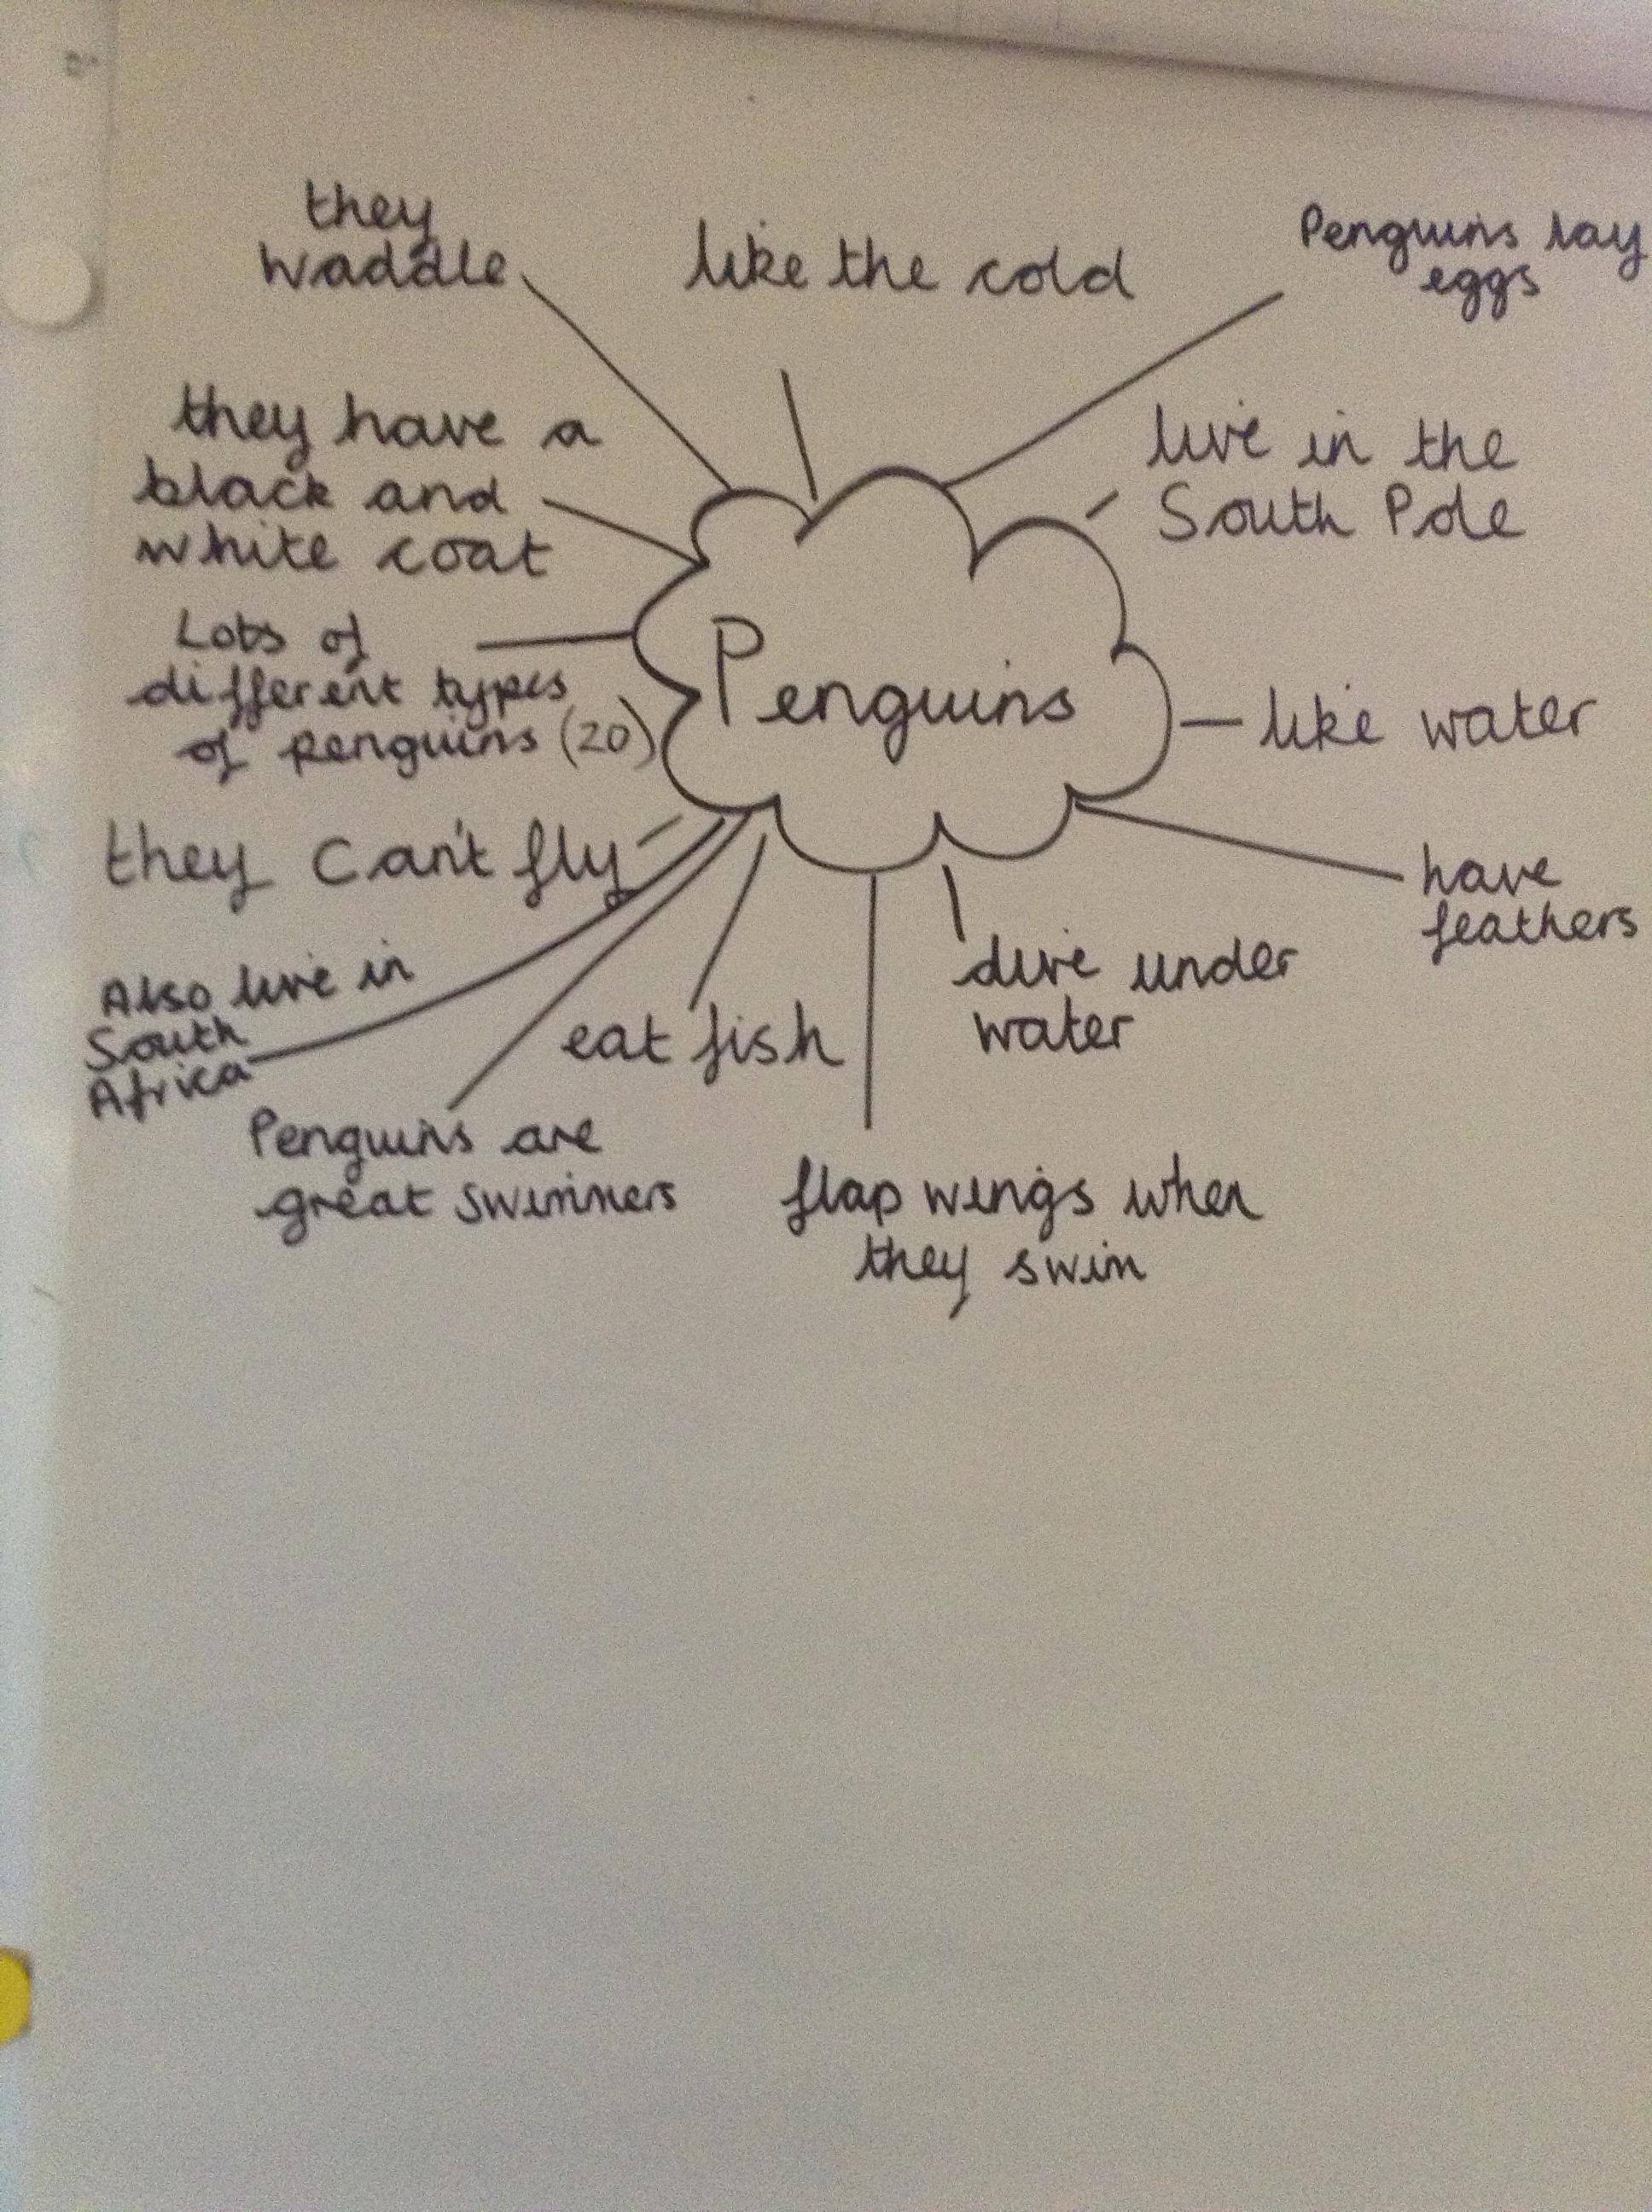 they
waddle
like the cold
Penguins lay
eggs
they have a
black and
white coat
live in the
South Pole
Lots of
different types
of penguins (20)
Penguins
like water
they can't fly
have
feathers
Also live in
South
Africa
eat fish
dive under
water
Penguins are
great swimmers
flap wings when
they swim